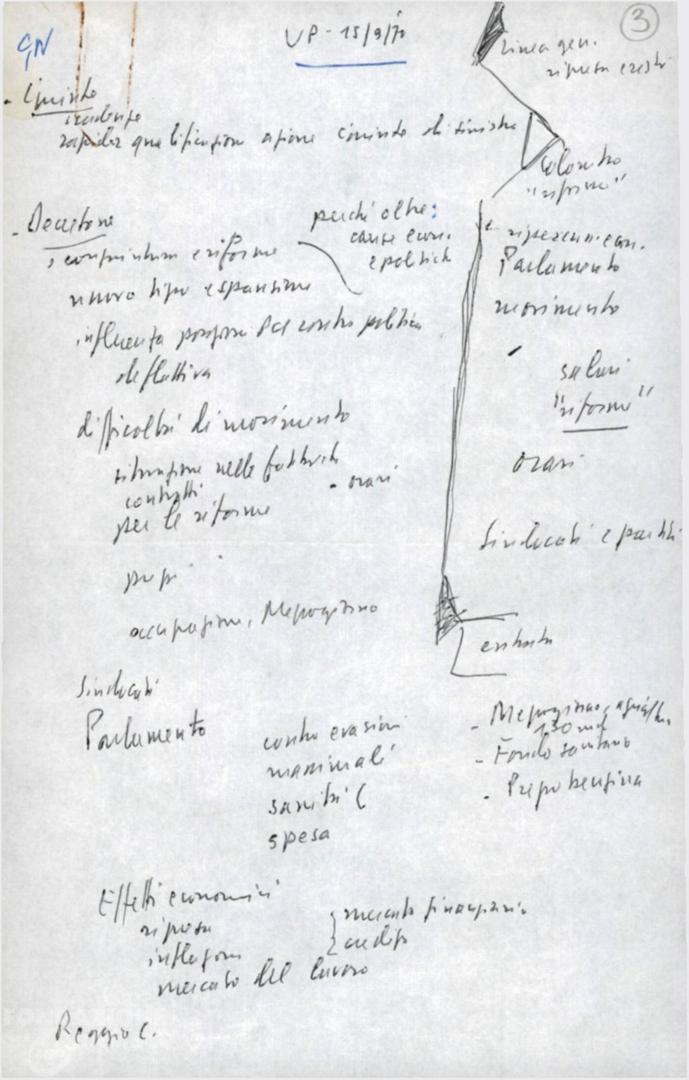 GN
UP - 15/9/70
3
Linea gen.
ripresa
- Giunte
rapida qualificazione azione Giunte di sinistra
Colombo
"riforme"
- Decretone
perché oltre:
cause econ.
e politiche
congiuntura e riforme
nuovo tipo espansione
influenza posizione PCI contro politica
deflattiva
difficoltà di movimento
situazione nelle fabbriche
contratti - orari
per le riforme
prezzi
occupazione, Mezzogiorno
ripercu. econ.
Parlamento
movimento
salari
"riforme"
orari
Sindacati e partiti
entrate
Sindacati
Parlamento
contro evasioni
massimali
sanità (
spesa
- Mezzogiorno, agricoltura
130 md
- Fondo sanitario
- Prezzo benzina
Effetti economici
ripresa
inflazione
mercato del lavoro
mercato finanziario
credito
Reggio C.